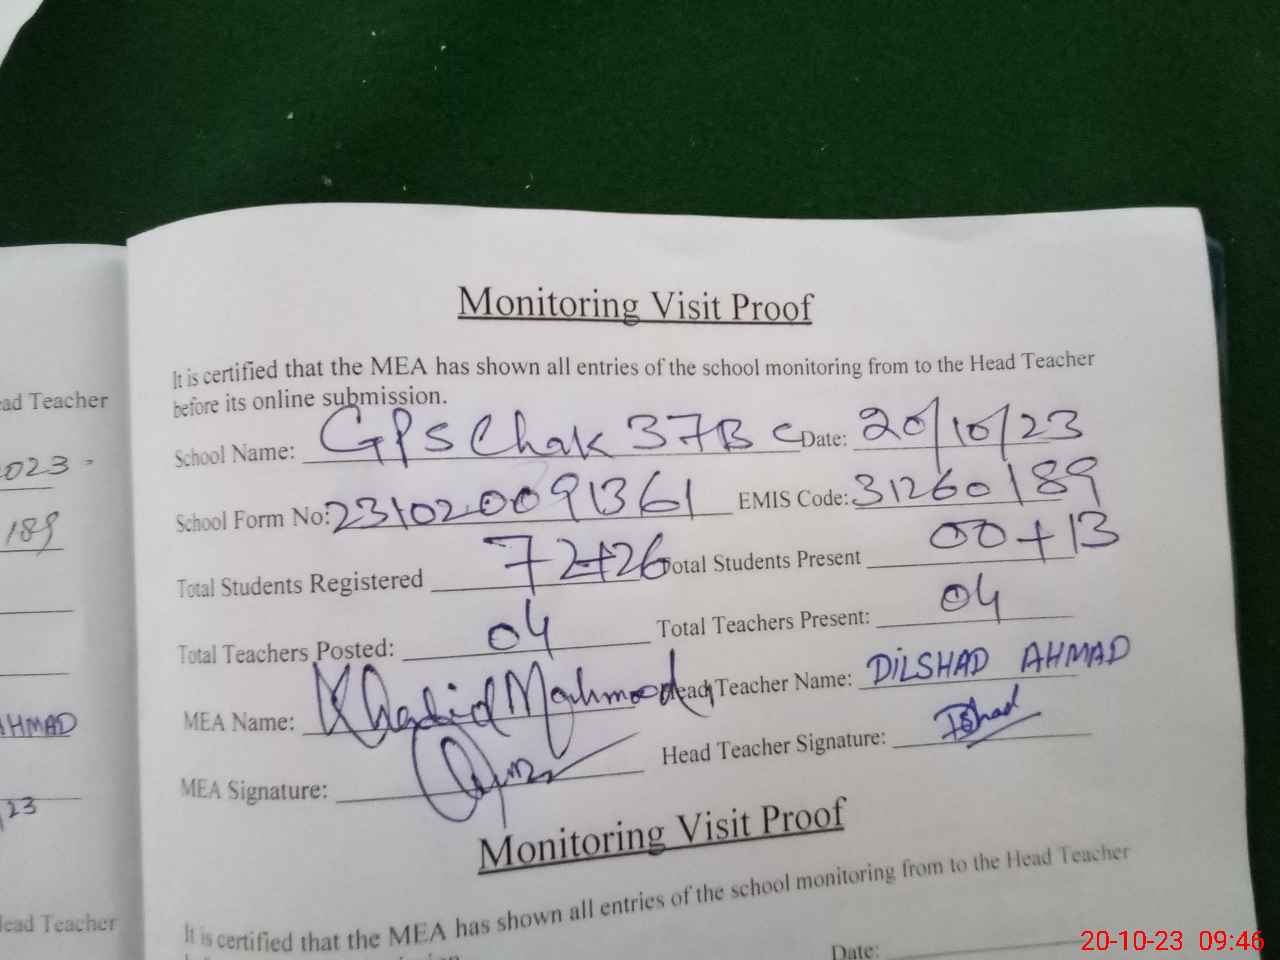 ead Teacher
2023 -
189
AHMAD
23
Head Teacher
Monitoring Visit Proof
It is certified that the MEA has shown all entries of the school monitoring from to the Head Teacher
before its online submission.
School Name: GPS Chak 37B C Date: 20/10/23
School Form No: 231020091361 EMIS Code: 31260189
Total Students Registered 72+26 Total Students Present 00+13
Total Teachers Posted: 04 Total Teachers Present: 04
MEA Name: Khalid Mahmood Head Teacher Name: DILSHAD AHMAD
MEA Signature: Head Teacher Signature: Dshad
Monitoring Visit Proof
It is certified that the MEA has shown all entries of the school monitoring from to the Head Teacher
Date:
20-10-23 09:46